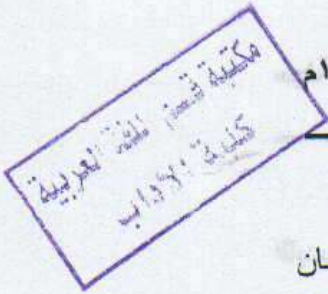 مكتبة قسم اللغة العربية
كلية الآداب